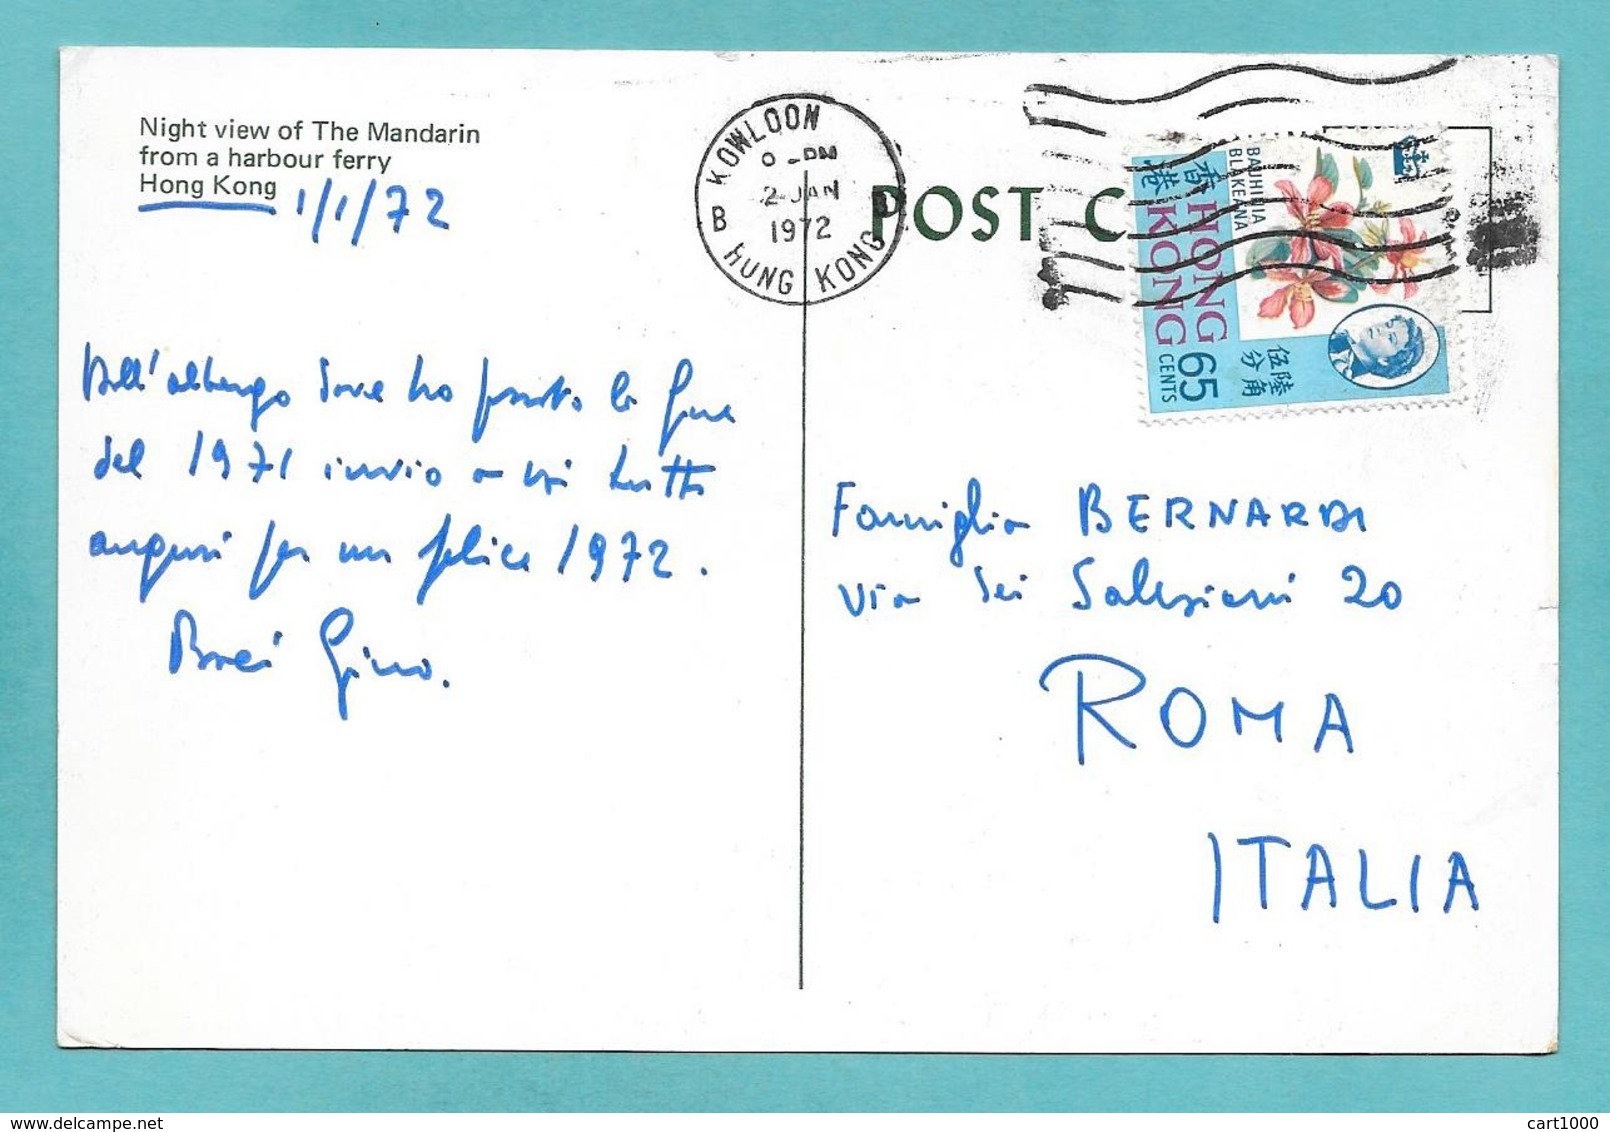 Night view of The Mandarin
from a harbour ferry
Hong Kong 1/1/72
Dall'albergo dove ho passato la fine
del 1971 invio a voi tutti
auguri per un felice 1972.
Baci Gino.
KOWLOON
PM
2 JAN
1972
B
HONG KONG
POST C
香港
HONG KONG
BAUHINIA
BLAKEANA
65
CENTS
伍陸
分角
Famiglia BERNARDI
Via dei Salesiani 20
ROMA
ITALIA
www.delcampe.net
cart1000